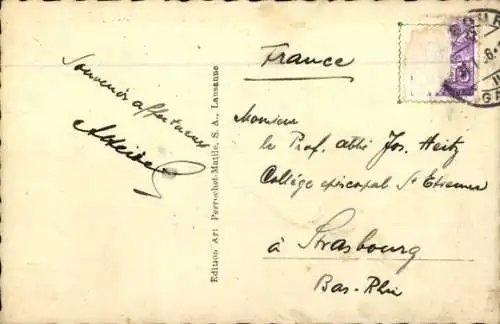 Souvenir affectueux
Edition Art Perrochet-Matile, S. A., Lausanne
France
Monsieur
le Prof. abbé Jos. Heitz
Collège episcopal St Etienne
à Strasbourg
Bas-Rhin